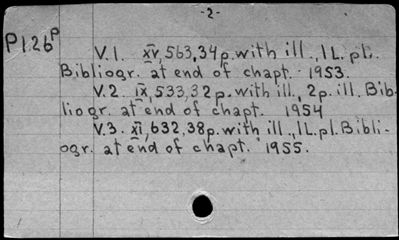 -2-
P126p
V.1. xv,563,34p.with ill.,1L.pl.
Bibliogr. at end of chapt. 1953.
V.2. ix,533,32p.with ill., 2p.ill. Bib-
liogr. at end of chapt. 1954
V.3. xi,632,38p.with ill.,1L.pl.Bibli-
ogr. at end of chapt. 1955.